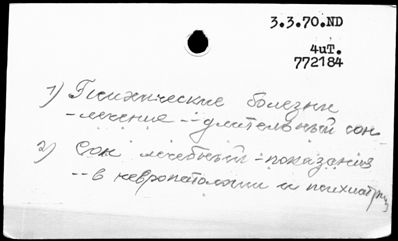 3.3.70.ND
4иT.
772184
1) Психические болезни
-лечение--длительный сон
2) Сон лечебный-показания
--в невропатологии и психиатрии